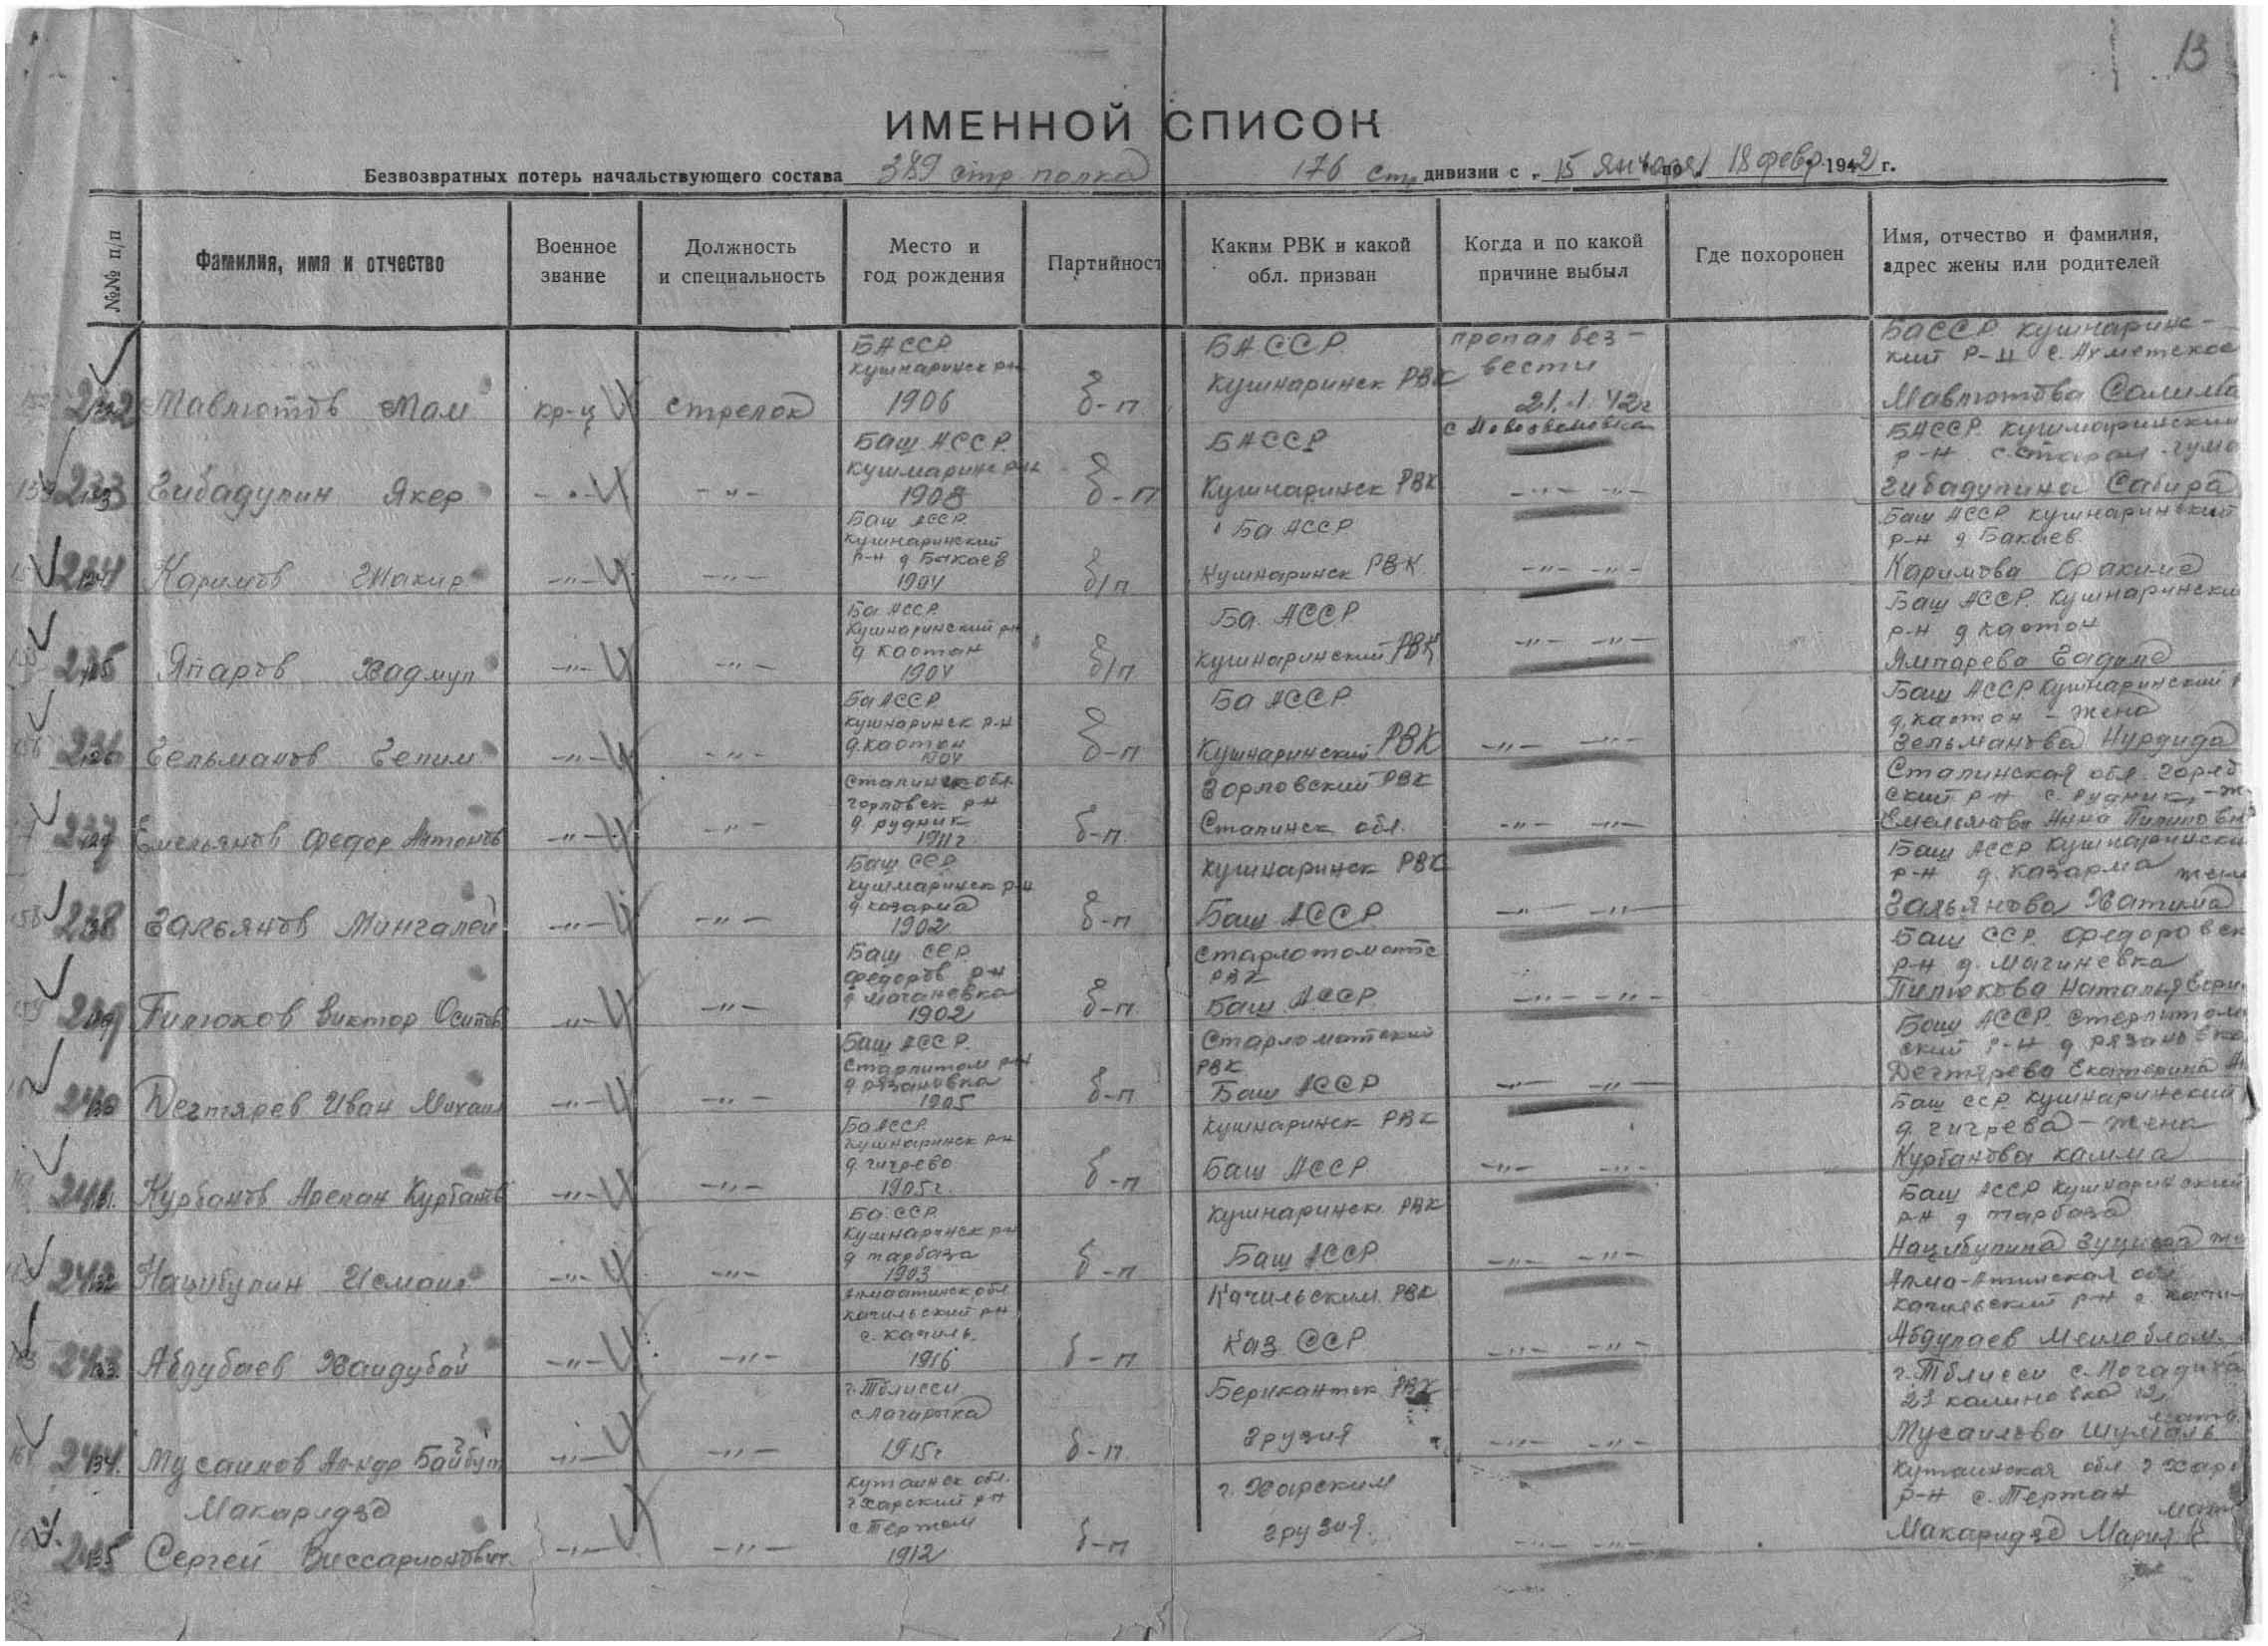 13
ИМЕННОЙ СПИСОК
Безвозвратных потерь начальствующего состава 389 стр полка 176 стр дивизии с „ 15 января по 18 февр 1942 г.
№№ п/п
Фамилия, имя и отчество
Военное звание
Должность и специальность
Место и год рождения
Партийност
Каким РВК и какой обл. призван
Когда и по какой причине выбыл
Где похоронен
Имя, отчество и фамилия, адрес жены или родителей
232 Мавлютов Мам кр-ц стрелок
БАССР
Кушнаринск р-н
1906
б-п
БАССР
Кушнаринск РВК
пропал без-
вести
21.1.42г
БАССР кушнаринс-
кий р-н с. Ахметское
Мавлютова Салима
233 Гибадулин Якер -"- -"-
Баш АССР.
Кушмаринс р-н
1908
б-п
БАССР
Кушнаринск РВК
-"- -"-
БАССР кушмаринский
р-н
Гибадулина Сабира
234 Каримов Жакир -"- -"-
Баш АССР.
Кушнаринский
р-н д Бакаев
1904
б/п
Ба АССР
Кушнаринск РВК
-"- -"-
Баш АССР кушнаринский
р-н д Бакаев
Каримова Фахимо
235 Япаров Хадмул -"- -"-
Ба АССР.
Кушнаринский рн
д каотон
1904
б/п
Ба. АССР
Кушнаринский РВК
-"- -"-
Баш АССР. Кушнаринский
р-н д каотон
Ямпарева
236 Гельманов Гелим -"- -"-
Ба АССР.
Кушнаринск р-н
д. каотон
1904
б-п
Ба АССР
Кушнаринский РВК
-"- -"-
Баш АССР Кушнаринский
д. каотон - жена
Гельманова Нурдида
237 Емельянов Федор Антонов -"- -"-
Сталинск обл.
Горловск р-н
д. рудник
1911г
б-п.
Горловский РВК
Сталинск обл.
-"- -"-
Сталинская обл. Горлов
ский р-н с. рудник -ж
Емельянова Анна Пилиповн
238 Гальянов Мингалей -"- -"-
Баш ССР.
Кушмаринск р-н
д. казарма
1902
б-п
Кушнаринск РВК
Баш АССР
-"- -"-
Баш АССР Кушнаринский
р-н д. казарма жена
Гальянова Хатима
239 Пилюков Виктор Осипов -"- -"-
Баш СЕР.
Федоров р-н
д Мачановка
1902
б-п.
Старлотомате
РВК
Баш АССР.
-"- -"-
Баш ССР. Федоровск
р-н д. Мачиневка
Пилюкова Наталья
240 Дегтярев Иван Михаил -"- -"-
Баш АССР.
Старлитом р-н
д. рязановка
1905
б-п
Старломатский
РВК
Баш АССР
-"- -"-
Баш АССР. Стерлитом
ский р-н д рязановка
Дегтярева Екатерина
241 Курбанов Арслан Курбатов -"- -"-
Ба АССР.
Кушнаринск р-н
д. гигрево
1905г.
б-п
Кушнаринск РВК
Баш АССР
-"- -"-
Баш ССР. Кушнаринский
д. гигрева - жена
Курбанова камма
242 Нацибулин Исмаил -"- -"-
Ба. ССР.
Кушнаринск рн
д тарбаза
1903
б-п
Кушнаринск РВК
Баш АССР.
-"- -"-
Баш АССР Кушнаринский
р-н д тарбаза
Нацибулина
243 Абдубаев Хаидубай -"- -"-
Алмаатинск обл
качильский рн
с. качиль
1916
б-п
Качильским РВК
Каз ССР
-"- -"-
Алма-Атинская обл
качильский р-н с. качил
Абдулаев
244 Мусаилов Ал-ндр Байбул -"- -"-
г. Тблисси
с. Лагирка
1915г
б-п.
Берикантск РВК
Грузия
-"- -"-
г. Тблисси
Мусаилова Шумаль
245 Макаридзе
Сергей Виссарионович. -"- -"-
Кутаинск обл.
г Харский рн
с Тержем
1912
б-п
г. Харским
Грузия.
-"- -"-
Кутаинская обл г Хар
р-н с. Тертан мать
Макаридзе Мария